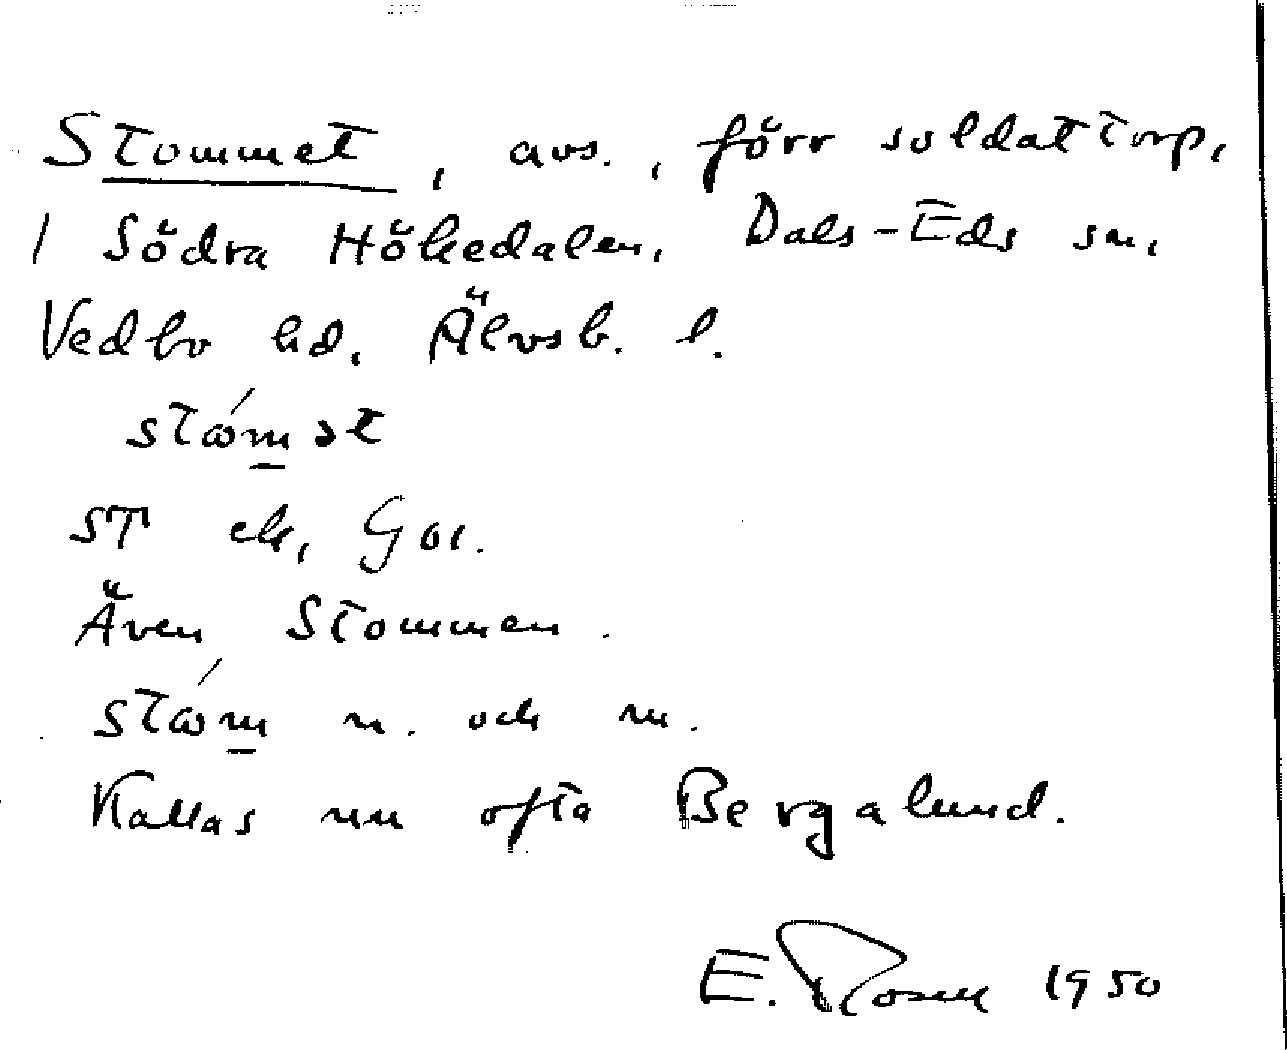 Stommet, avs., förr soldattorp,
1 Södra Hökedalen, Dals-Eds sn,
Vedbo hd, Älvsb. l.
Även Stommen.
n. och m.
Kallas nu ofta Bergalund.
E. Rosell 1950